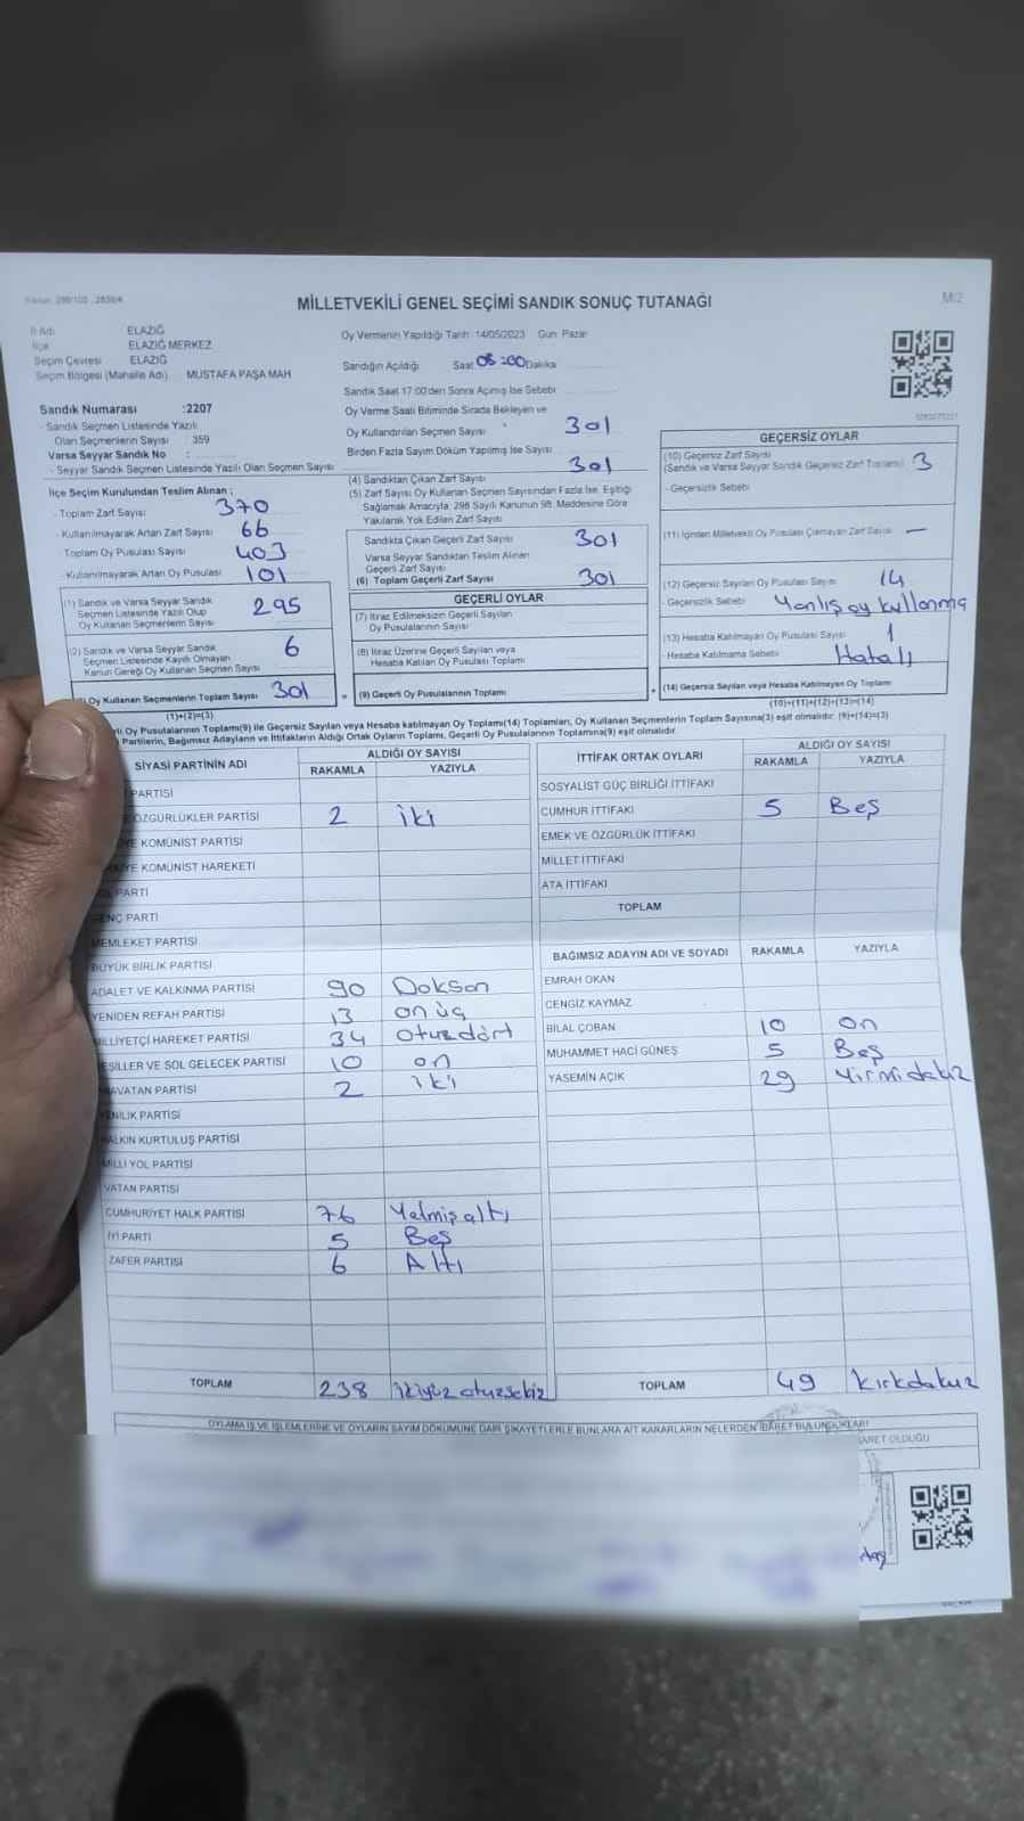 MİLLETVEKİLİ GENEL SEÇİMİ SANDIK SONUÇ TUTANAĞI
M/2
İl Adı ELAZIĞ
İlçe ELAZIĞ MERKEZ
Seçim Çevresi ELAZIĞ
Seçim Bölgesi (Mahalle Adı) MUSTAFA PAŞA MAH
Sandık Numarası :2207
- Sandık Seçmen Listesinde Yazılı
Olan Seçmenlerin Sayısı : 359
Varsa Seyyar Sandık No :
- Seyyar Sandık Seçmen Listesinde Yazılı Olan Seçmen Sayısı
İlçe Seçim Kurulundan Teslim Alınan ;
- Toplam Zarf Sayısı 370
- Kullanılmayarak Artan Zarf Sayısı 66
Toplam Oy Pusulası Sayısı 403
- Kullanılmayarak Artan Oy Pusulası 101
(1) Sandık ve Varsa Seyyar Sandık
Seçmen Listesinde Yazılı Olup
Oy Kullanan Seçmenlerin Sayısı 295
(2) Sandık ve Varsa Seyyar Sandık
Seçmen Listesinde Kayıtlı Olmayan
Kanun Gereği Oy Kullanan Seçmen Sayısı 6
Oy Kullanan Seçmenlerin Toplam Sayısı 301
(1)+(2)=(3)
Oy Vermenin Yapıldığı Tarih: 14/05/2023 Gün: Pazar
Sandığın Açıldığı Saat 08:00 Dakika
Sandık Saat 17:00'den Sonra Açılmış İse Sebebi
Oy Verme Saati Bitiminde Sırada Bekleyen ve
Oy Kullandırılan Seçmen Sayısı 301
Birden Fazla Sayım Döküm Yapılmış İse Sayısı
(4) Sandıktan Çıkan Zarf Sayısı 301
(5) Zarf Sayısı Oy Kullanan Seçmen Sayısından Fazla İse, Eşitliği
Sağlamak Amacıyla; 298 Sayılı Kanunun 98. Maddesine Göre
Yakılarak Yok Edilen Zarf Sayısı
Sandıkta Çıkan Geçerli Zarf Sayısı 301
Varsa Seyyar Sandıktan Teslim Alınan
Geçerli Zarf Sayısı
(6) Toplam Geçerli Zarf Sayısı 301
GEÇERLİ OYLAR
(7) İtiraz Edilmeksizin Geçerli Sayılan
Oy Pusulalarının Sayısı
(8) İtiraz Üzerine Geçerli Sayılan veya
Hesaba Katılan Oy Pusulası Toplamı
= (9) Geçerli Oy Pusulalarının Toplamı
GEÇERSİZ OYLAR
(10) Geçersiz Zarf Sayısı
(Sandık ve Varsa Seyyar Sandık Geçersiz Zarf Toplamı) 3
- Geçersizlik Sebebi
(11) İçinden Milletvekili Oy Pusulası Çıkmayan Zarf Sayısı —
(12) Geçersiz Sayılan Oy Pusulası Sayısı 14
- Geçersizlik Sebebi Yanlış oy kullanma
(13) Hesaba Katılmayan Oy Pusulası Sayısı 1
- Hesaba Katılmama Sebebi Hatalı
+ (14) Geçersiz Sayılan veya Hesaba Katılmayan Oy Toplamı
(10)+(11)+(12)+(13)=(14)
Oy Pusulalarının Toplamı(9) ile Geçersiz Sayılan veya Hesaba katılmayan Oy Toplamı(14) Toplamları, Oy Kullanan Seçmenlerin Toplam Sayısına(3) eşit olmalıdır. (9)+(14)=(3)
Partilerin, Bağımsız Adayların ve İttifakların Aldığı Ortak Oyların Toplamı, Geçerli Oy Pusulalarının Toplamına(9) eşit olmalıdır
SİYASİ PARTİNİN ADI ALDIĞI OY SAYISI
RAKAMLA YAZIYLA
PARTİSİ
ÖZGÜRLÜKLER PARTİSİ 2 iki
KOMÜNİST PARTİSİ
KOMÜNİST HAREKETİ
PARTİ
GENÇ PARTİ
MEMLEKET PARTİSİ
BÜYÜK BİRLİK PARTİSİ
ADALET VE KALKINMA PARTİSİ 90 Doksan
YENİDEN REFAH PARTİSİ 13 on üç
MİLLİYETÇİ HAREKET PARTİSİ 34 otuzdört
YEŞİLLER VE SOL GELECEK PARTİSİ 10 on
ANAVATAN PARTİSİ 2 iki
YENİLİK PARTİSİ
HALKIN KURTULUŞ PARTİSİ
MİLLİ YOL PARTİSİ
VATAN PARTİSİ
CUMHURİYET HALK PARTİSİ 76 Yetmişaltı
İYİ PARTİ 5 Beş
ZAFER PARTİSİ 6 Altı
TOPLAM 238 ikiyüz otuzsekiz
İTTİFAK ORTAK OYLARI ALDIĞI OY SAYISI
RAKAMLA YAZIYLA
SOSYALİST GÜÇ BİRLİĞİ İTTİFAKI
CUMHUR İTTİFAKI 5 Beş
EMEK VE ÖZGÜRLÜK İTTİFAKI
MİLLET İTTİFAKI
ATA İTTİFAKI
TOPLAM
BAĞIMSIZ ADAYIN ADI VE SOYADI RAKAMLA YAZIYLA
EMRAH OKAN
CENGİZ KAYMAZ
BİLAL ÇOBAN 10 on
MUHAMMET HACİ GÜNEŞ 5 Beş
YASEMİN AÇIK 29 Yirmidokuz
TOPLAM 49 kırkdokuz
OYLAMA İŞ VE İŞLEMLERİNE VE OYLARIN SAYIM DÖKÜMÜNE DAİR ŞİKAYETLERLE BUNLARA AİT KARARLARIN NELERDEN İBARET BULUNDUKLARI
İBARET OLDUĞU